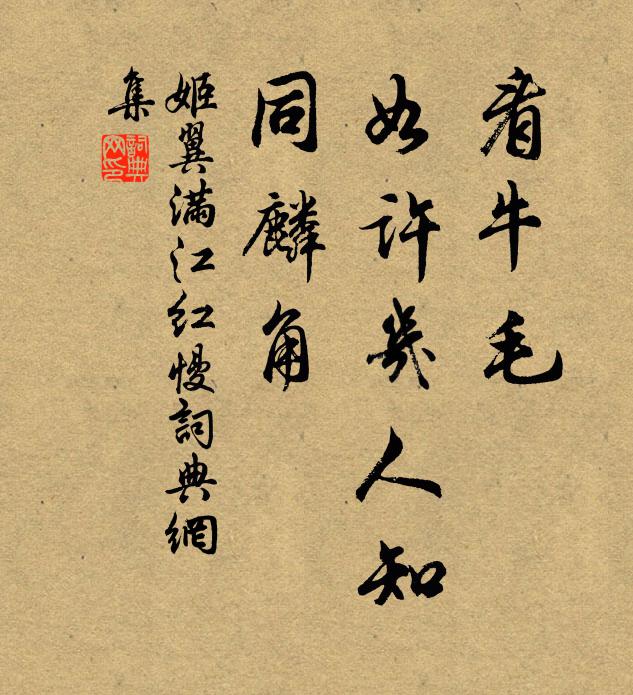 看牛毛
如许几人知
同麟角
姬翼满江红慢詞典網
集
詞典
网印